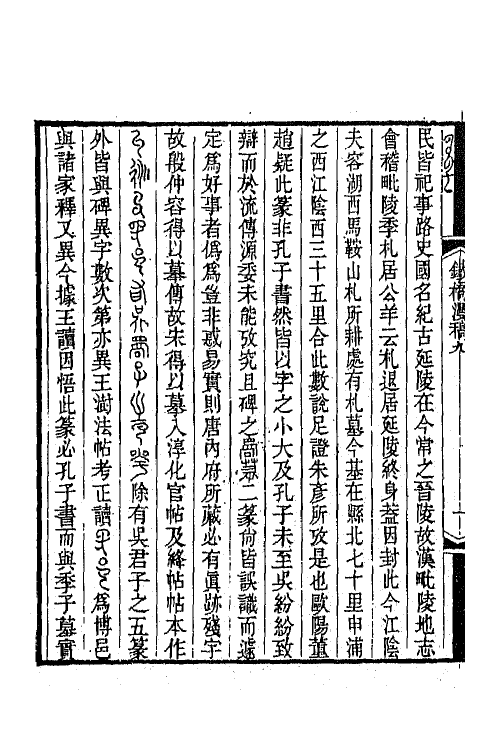 民皆祀事路史國名紀古延陵在今常之晉陵故漢毗陵地志
會稽毗陵季札居公羊云札退居延陵終身葢因封此今江陰
夫客湖西馬鞍山札所耕處有札墓今墓在縣北七十里申浦
之西江陰西三十五里合此數說足證朱彥所攷是也歐陽董
趙疑此篆非孔子書然皆以字之小大及孔子未至吳紛紛致
辯而於流傳源委未能攷究且碑之二篆尙皆誤識而遽
定爲好事者僞爲豈非惑易實則唐內府所藏必有眞跡殘字
故殷仲容得以摹傳故宋得以摹入淳化官帖及絳帖帖本作
除有吳君子之五篆
外皆與碑異字數次第亦異王澍法帖考正讀爲博邑
與諸家釋又異今據王讀因悟此篆必孔子書而與季子墓實
鐵橋漫稿九